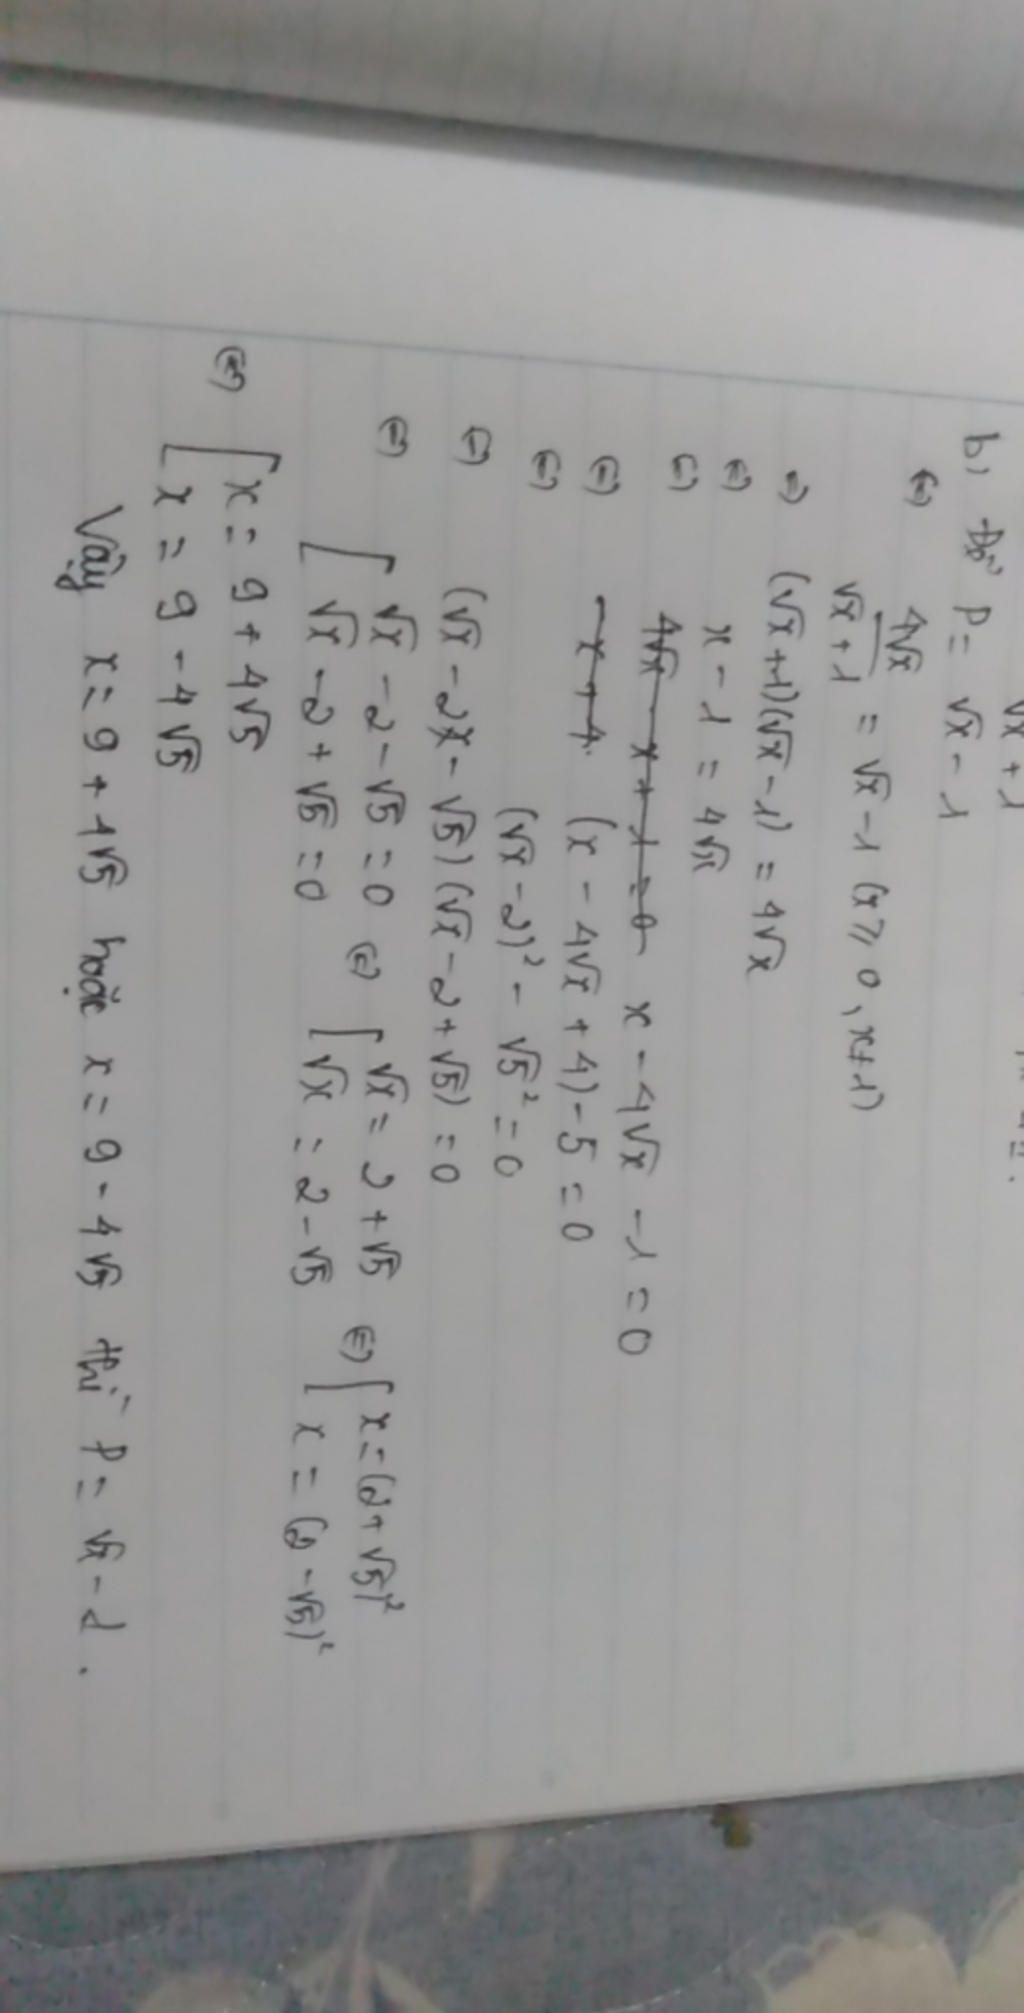 √x + 1
b) Để P = √x - 1
(=) 4√x / √x + 1 = √x - 1 (x ≥ 0, x ≠ 1)
=) (√x + 1)(√x - 1) = 4√x
(=) x - 1 = 4√x
(=) 4√x - x + 1 = 0 x - 4√x - 1 = 0
(=) - x + 4 (x - 4√x + 4) - 5 = 0
(=) (√x - 2)² - √5² = 0
(=) (√x - 2 - √5)(√x - 2 + √5) = 0
(=) [ √x - 2 - √5 = 0 (=) [ √x = 2 + √5 (=) [ x = (2 + √5)²
√x - 2 + √5 = 0 √x = 2 - √5 x = (2 - √5)²
(=) [ x = 9 + 4√5
x = 9 - 4√5
Vậy x = 9 + 4√5 hoặc x = 9 - 4√5 thì P = √x - 1.